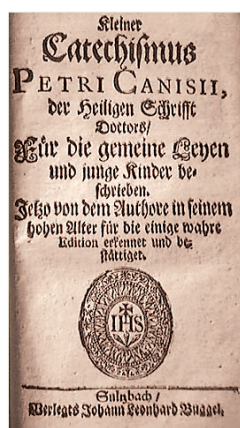 Kleiner
Catechismus
PETRI CANISII,
der Heiligen Schrifft
Doctors/
Für die gemeine Leyen
und junge Kinder be-
schrieben.
Jetzo von dem Authore in seinem
hohen Alter für die einige wahre
Edition erkennet und be-
stättiget.
IHS
Sultzbach/
Verlegts Johann Leonhard Buggel.